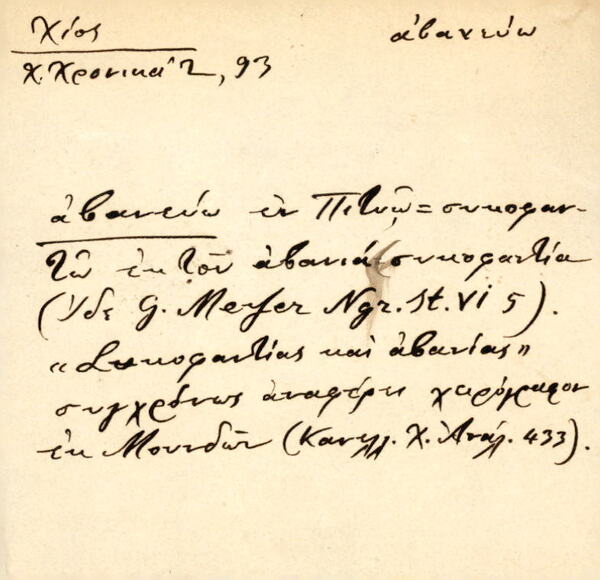 Χίος
ἀβανεύω
Χ. Χρονικά 2, 93
ἀβανεύω ἐν Πιτυῷ = συκοφαν-
τῶ ἐκ τοῦ ἀβανιά συκοφαντία
(Ἴδε G. Meyer Ngr. St. VI 5).
«Συκοφαντίας καὶ ἀβανίας»
συγχρόνως ἀναφέρει χειρόγραφον
ἐκ Μουνδῶν (Κανελλ. Χ. Ἀνάλ. 433).